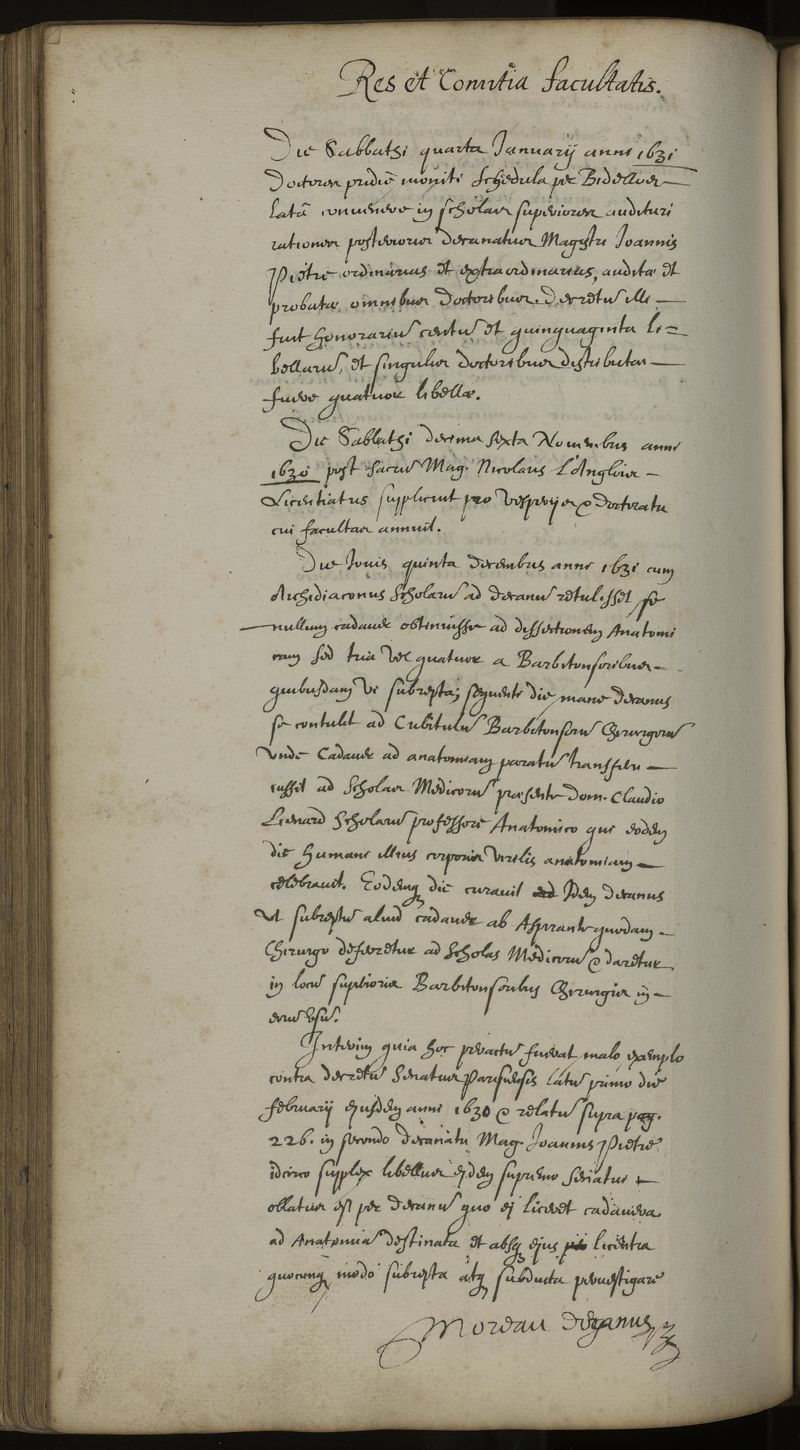 Res et Comitia facultatis.
Die Sabbathi quarta Januarij anni 1631
Doctores pridie moniti schedula per Bidellos
latā convenere in scholas superiores audituri
rationes posterioris decanatus Magistri Joannis
Pietre ordinarias et extraordinarias, auditæ et
probatæ omnibus doctoribus. decretū illi
fuit honorariū centū et quinquaginta li=
bellarū, et singulis doctoribus distributæ
fuere quatuor libellæ.
Die Sabbathi decima sexta Novembris anni
1630 post sacrū Mag. Nicolaus L'Anglois
Licentiatus supplicuit pro vesperijs & doctoratu
cui facultas annuit.
Die Jovis quinta decembris anni 1631 cum
Archidiaconus scholarū ad decanū retulisset se
nullum cadaver obtinuisse ad dissectionem Anatomi
cam sed tria vel quatuor a Barbitonsoribus
quibusdam vi subrepta; sequenti die mane decanus
se contulit ad Cubiculū Barbitonsorū Chirurgorū
unde Cadaver ad anatomiam paratū transferri
iussit ad scholas Medicorū præsente dom. Claudio
Lienard scholarū professore Anatomico qui eodem
die humani illius corporis virilis anatomiam
celebravit. Eodemq die curavit idem decanus
ut subreptū aliud cadaver ab Aspirante quodam
Chirurgo deferretur ad scholas Medicorū & daretur
in locū superioris Barbitonsoribus Chirurgis in
eorū usū.
Interim quia hoc peractū fuerat malo exemplo
contra decretū Senatus Parisiensis latū primo die
februarij ejusdem anni 1630 & relatū supra pag.
226. in secundo decanatu Mag. Joannis Pietre
idcirco supplex libellus ejdem supremo senatui
oblatus est per decanū quo ej liceret cadavera
ad Anatomiā destinata et absq ejus licentia
quocunq modo subrepta atq subducta pervestigare
Moreau decanus